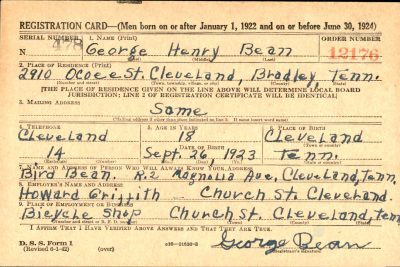 REGISTRATION CARD—(Men born on or after January 1, 1922 and on or before June 30, 1924)
SERIAL NUMBER 1. NAME (Print) ORDER NUMBER
N 478 George Henry Bean 12176
(First) (Middle) (Last)
2. PLACE OF RESIDENCE (Print)
2910 Ocoee St. Cleveland, Bradley Tenn.
[THE PLACE OF RESIDENCE GIVEN ON THE LINE ABOVE WILL DETERMINE LOCAL BOARD
JURISDICTION; LINE 2 OF REGISTRATION CERTIFICATE WILL BE IDENTICAL]
3. MAILING ADDRESS
Same
[Mailing address if other than place indicated on line 2. If same insert word same]
4. TELEPHONE 5. AGE IN YEARS 6. PLACE OF BIRTH
Cleveland 18 Cleveland
DATE OF BIRTH
14 Sept. 26, 1923 Tenn.
7. NAME AND ADDRESS OF PERSON WHO WILL ALWAYS KNOW YOUR ADDRESS
Bird Bean, Magnolia Ave, Cleveland, Tenn.
8. EMPLOYER'S NAME AND ADDRESS
Howard Griffith Church St. Cleveland.
9. PLACE OF EMPLOYMENT OR BUSINESS
Bicycle Shop Church St. Cleveland, Tenn
I AFFIRM THAT I HAVE VERIFIED ABOVE ANSWERS AND THAT THEY ARE TRUE.
D. S. S. Form 1
(Revised 6-1-42) (over) George Bean
(Registrant's signature)